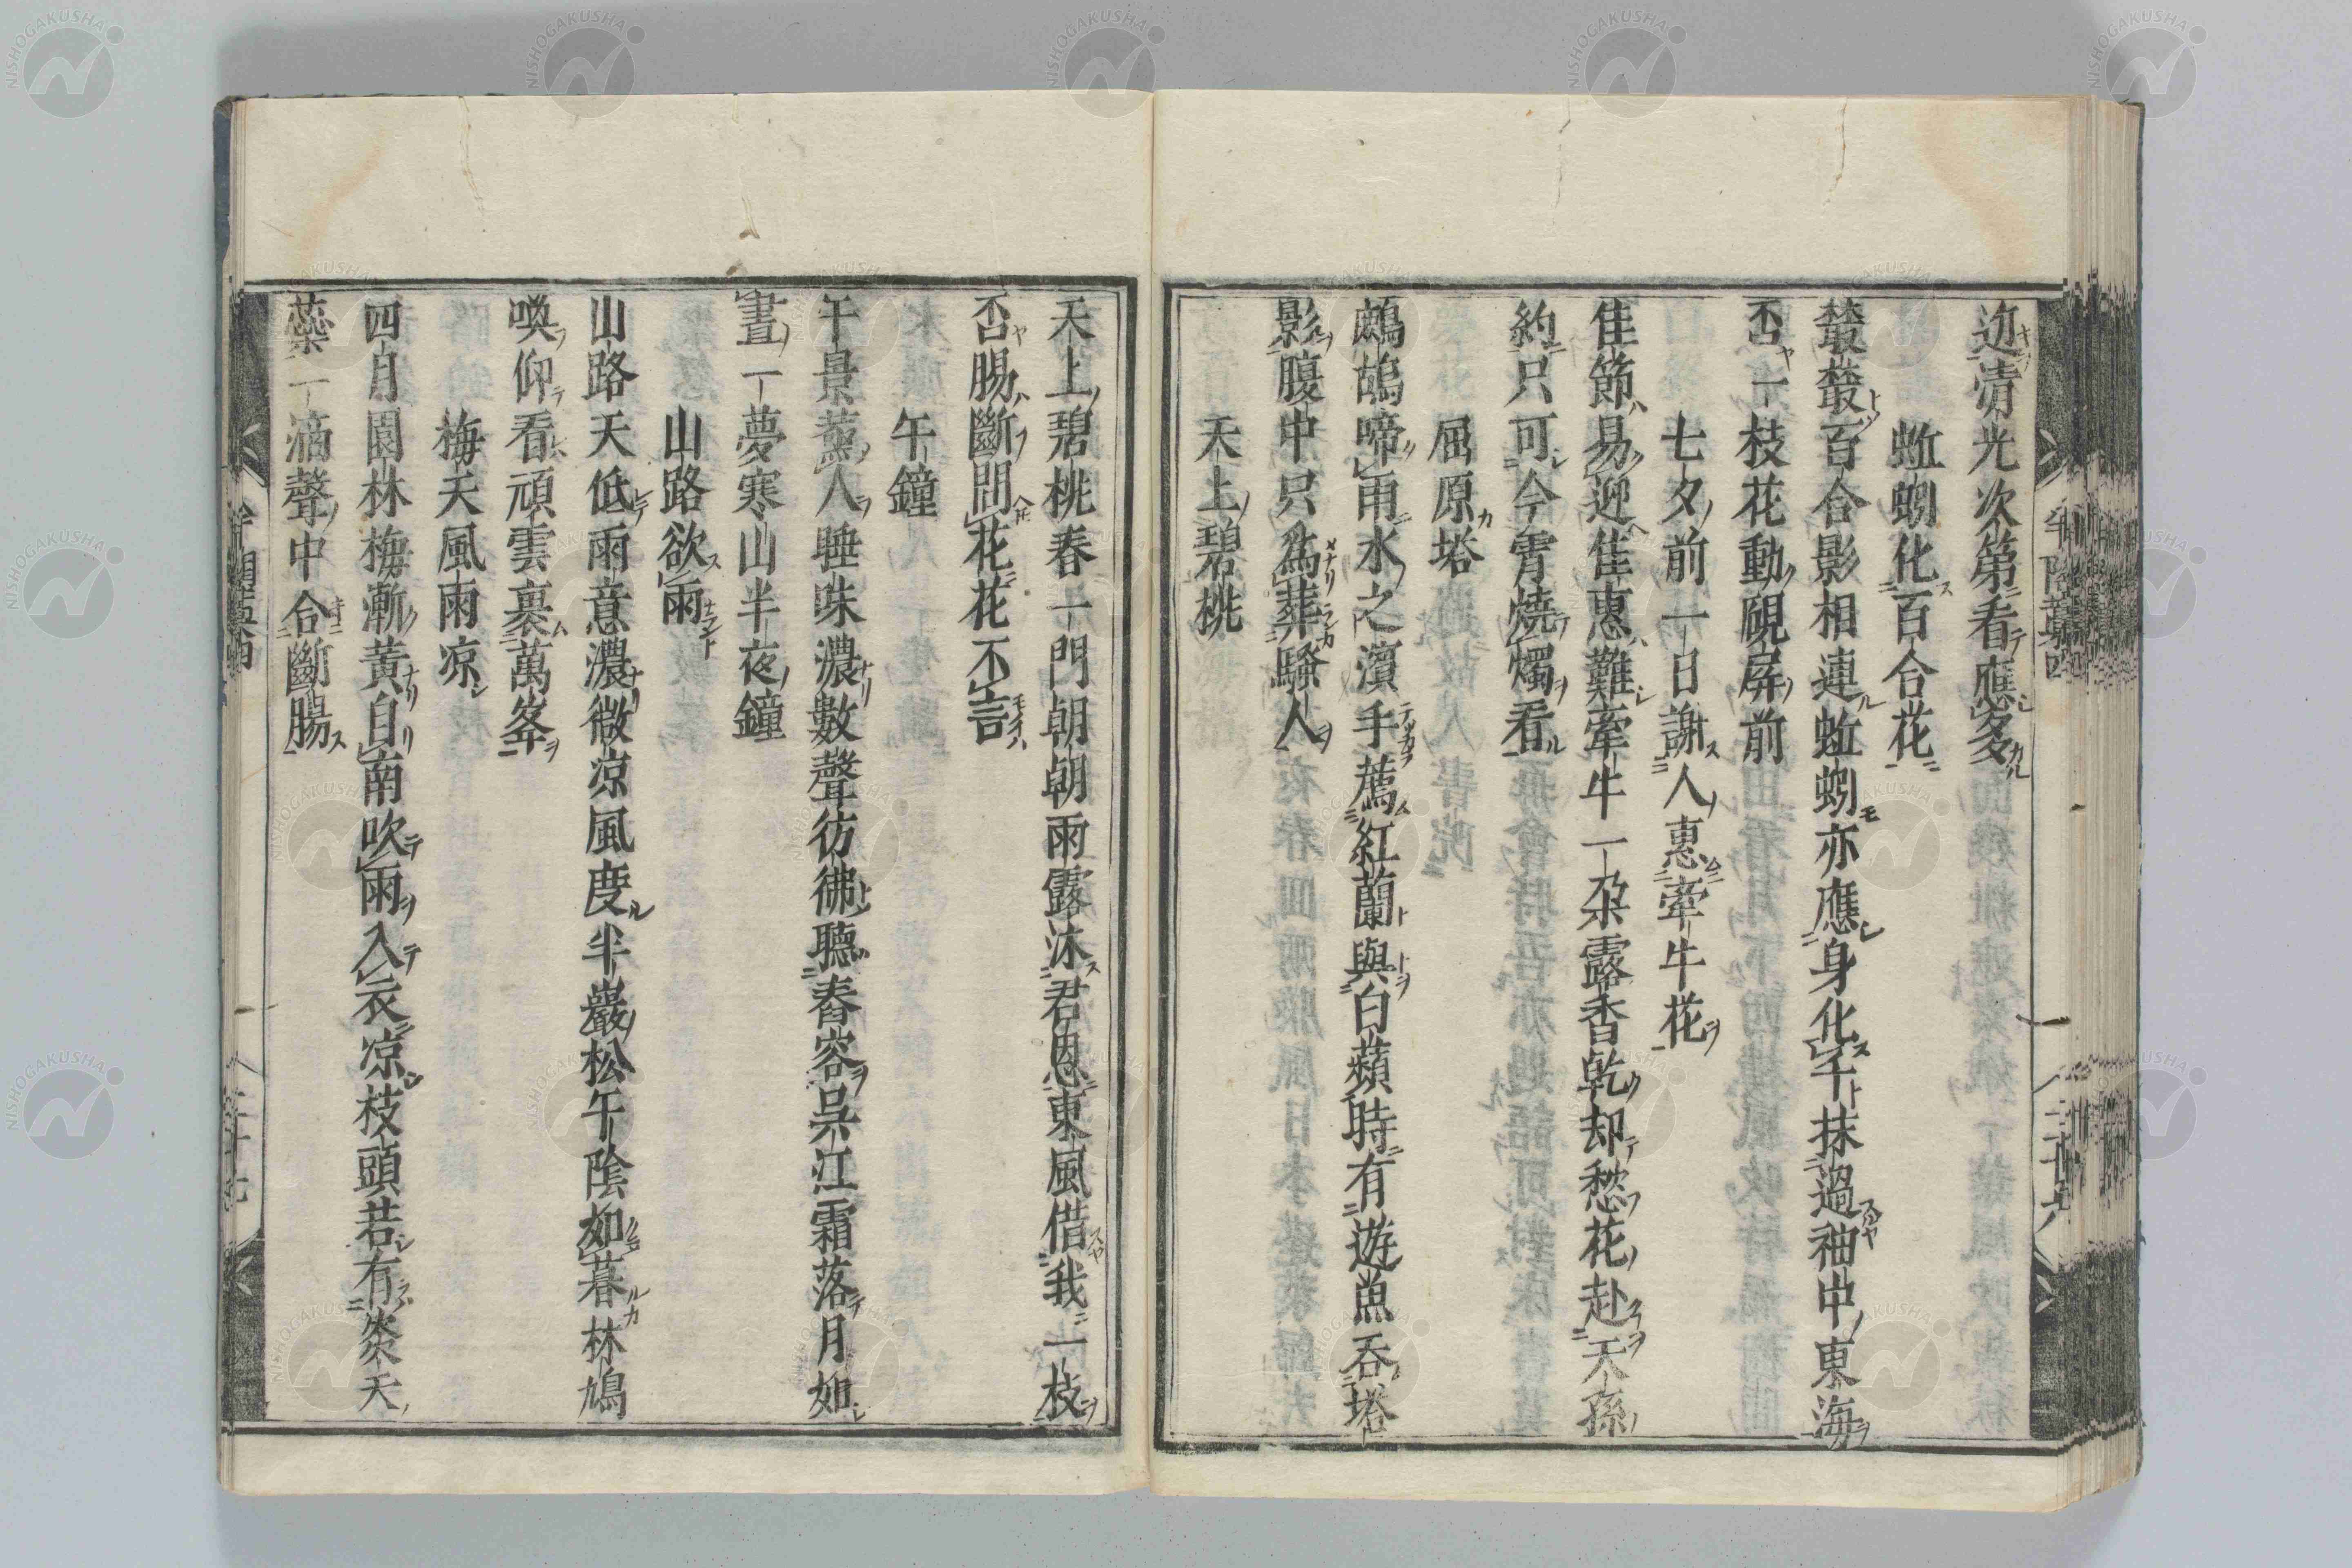 迩淸光次第看應多
蚯蚓化百合花
叢叢百合影相連蚯蚓亦應身化千抹過袖中東海
否一枝花動硯屏前
七夕前一日謝人惠牽牛花
佳節易迎佳惠難牽牛一朶露香乾却愁花赴天孫
約只可今宵燒燭看
屈原塔
鷓鴣啼雨水之濱手薦紅蘭與白蘋時有遊魚呑塔
影腹中只爲葬騷人
天上碧桃
天上碧桃春一門朝朝雨露沐君恩東風借我一枝
否腸斷問花花不言
午鐘
午景薰人睡味濃數聲彷彿聽舂容呉江霜落月如
晝一夢寒山半夜鐘
山路欲雨
山路天低雨意濃微凉風度半巖松午陰如暮林鳩
喚仰看頑雲裹萬峯
梅天風雨凉
四月園林梅漸黃自南吹雨入衣凉枝頭若有黍天
藥一滴聲中合斷腸